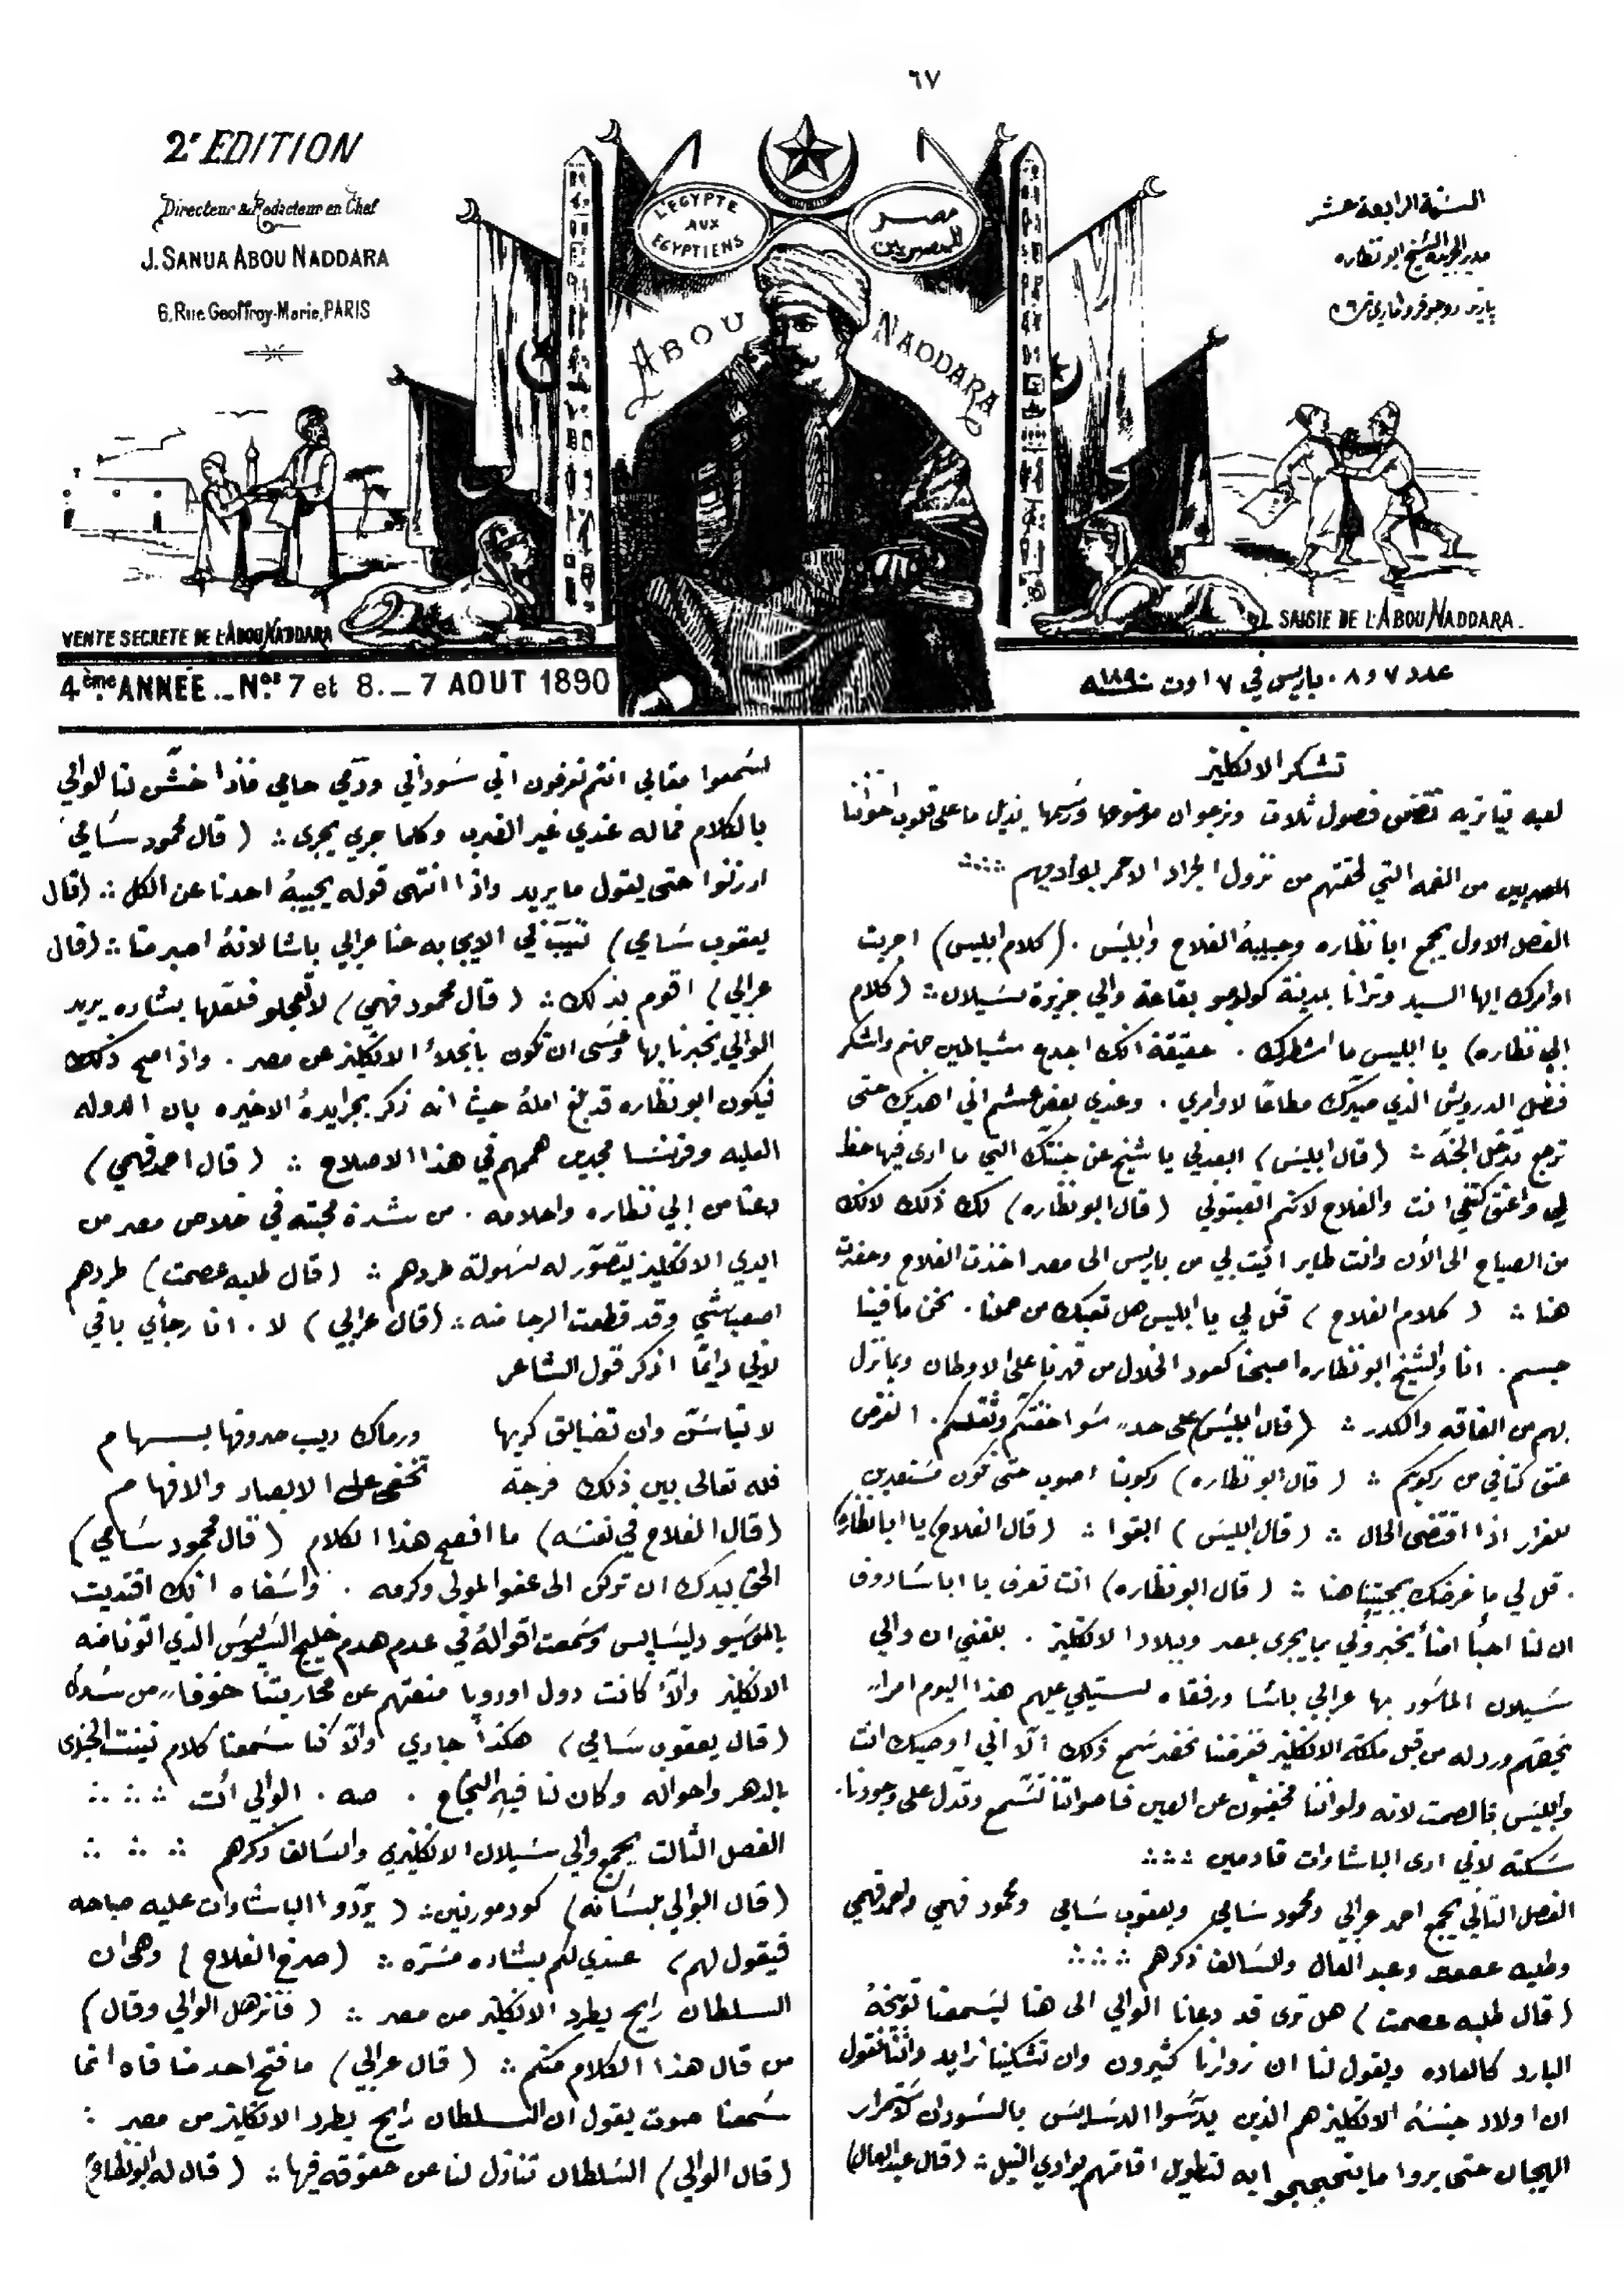 ٦٧
2e EDITION
Directeur & Rédacteur en Chef
J. SANUA ABOU NADDARA
6, Rue Geoffroy-Marie, PARIS
L'EGYPTE
AUX
EGYPTIENS
مصر
للمصريين
ABOU NADDARA
السنة الرابعة عشر
مدير الجريدة الشيخ ابو نظاره
VENTE SECRETE DE L'ABOU NADDARA
SAISIE DE L'ABOU NADDARA.
4ème ANNÉE _ Nos 7 et 8. _ 7 AOUT 1890
عدد ٧ و ٨ . باريس في ٧ اوت سنة ١٨٩٠
تشكر الانكليز
لعبه تياتريه تتضمن فصول ثلاث ونرجو ان موضوعها ورسمها يزيل ما على قلوب اخواننا
المصريين من الغمه التي لحقتهم من نزول الجراد الاحمر بواديهم
الفصل الاول يجمع ابا نظاره وحبيبهُ الفلاح وابليس . (كلام ابليس) اجريت
اوامرك ايها السيد وترانا بمدينة كولومبو بقاعة والي جزيرة سيلان (كلام
ابي نظاره) يا ابليس ما اشطرك . حقيقة انك اجدع شياطين جهنم واشكر
فضل الدرويش الذي صيرك مطاعًا لاوامري . وعندي بعض عشم اني اهديك حتى
ترجع تدخل الجنه (قال ابليس) ابعدني يا شيخ عن جنتك التي ما ارى فيها حظ
لي واعتق كتفي انت والفلاح لانكم اتعبتوني (قال ابو نظاره) لك ذلك لانك
من الصباح الى الآن وانت طاير اتيت بي من باريس الى مصر اخذت الفلاح وحضرت
هنا (كلام الفلاح) قل لي يا ابليس هل تعبك من حملنا . نحن ما فينا
جسم . انا والشيخ ابو نظاره اصبحنا كعود الخلال من قهرنا على الاوطان وبما نزل
بهم من الفاقه والكدر (قال ابليس) على حد سوا خفتكم وثقلكم . الغرض
عتق كتافي من ركوبكم (قال ابو نظاره) ركوبنا اصوب حتى نكون مستعدين
للفرار اذا اقتضى الحال (قال ابليس) ابقوا (قال الفلاح) يا ابا نظاره
. قل لي ما غرضك بمجيئنا هنا (قال ابو نظاره) انت تعرف يا ابا شادوف
ان لنا احبأ امنأ يخبروني بما يجرى بمصر وببلاد الانكليز . بلغني ان والي
سيلان المأسور بها عرابي باشا ورفقاه سيتلي عليهم هذا اليوم امرا
بحقهم ورد له من قبل ملكة الانكليز فغرضنا نحضر نسمع ذلك الّا اني اوصيك انت
وابليس بالصمت لانه ولو اننا مخفيون عن العين فاصواتنا تسمع وتدل على وجودنا.
سكته لاني ارى الباشاوات قادمين
الفصل الثاني يجمع احمد عرابي ومحمود سامي ويعقوب سامي ومحمود فهمي واحمد فهمي
وطلبه عصمت وعبد العال والسالف ذكرهم
(قال طلبه عصمت) هل ترى قد دعانا الوالي الى هنا ليسمعنا توبيخهُ
البارد كالعاده ويقول لنا ان زوارنا كثيرون وان تشكينا زايد واننا نقول
ان اولاد جنسه الانكليز هم الذين يدسوا الدسايس بالسودان لاستمرار
الهيجان حتى يروا ما يتحججو ابه لتطويل اقامتهم بوادي النيل (قال عبد العال)
لسمعوا مقالي انتم تعرفون اني سوداني ودمي حامي فاذا خشّن لنا الوالي
بالكلام فما له عندي غير الضرب وكلما جري يجرى (قال محمود سامي)
ارزنوا حتى يقول ما يريد واذا انتهى قوله يجيبهُ احدنا عن الكل (قال
يعقوب سامي) ننيب في الايجابه عنا عرابي باشا لانهُ اصبر منا (قال
عرابي) اقوم بذلك (قال محمود فهمي) لا تعجلو فلعلها بشاره يريد
الوالي يخبرنا بها وعسى ان تكون بانجلاء الانكليز عن مصر . واذا صح ذلك
فيكون ابو نظاره قد بلغ املهُ حيث انه ذكر بجرايدهُ الاخيره بان الدوله
العليه وفرنسا مجدين هممهم في هذا الاصلاح (قال احمد فهمي)
دعنا من ابي نظاره واحلامه . من شدة محبته في خلاص مصر من
ايدي الانكليز يتصور له سهولة طردهم (قال طلبه عصمت) طردهم
اصعب شي وقد قطعت الرجا منه (قال عرابي) لا . انا رجأي باقي
لاني دايمًا اذكر قول الشاعر
لا تيأسنّ وان تضايق كربها ورماك ريب صروفها بسهام
فله تعالى بين ذلك فرجة تخفى على الابصار والافهام
(قال الفلاح في نفسه) ما افصح هذا الكلام (قال محمود سامي)
الحق بيدك ان تركن الى عفو المولى وكرمه . واسفاه انك اقتديت
بالموسيو دليسابس وسمعت اقوالهُ في عدم هدم خليج السويس الذي اتونا منه
الانكليز والّا كانت دول اوروبا منعتهم عن محاربتنا خوفا من سده
(قال يعقوب سامي) هكذا جاري والّا كنا سمعنا كلام نينت الخبرى
بالدهر واحواله وكان لنا فيه النجاح . صه . الوالي أتت
الفصل الثالث يجمع والي سيلان الانكليزي والسالف ذكرهم
(قال الوالي بلسانه) كود مورنين (يردّوا الباشاوات عليه صباحه
فيقول لهم) عندي لكم بشاره مسرّه (صرخ الفلاح) وهى ان
السلطان رايح يطرد الانكليز من مصر (فانزهل الوالي وقال)
من قال هذا الكلام منكم (قال عرابي) ما فتح احد منا فاه انما
سمعنا صوت يقول ان السلطان رايح يطرد الانكليز من مصر
(قال الوالي) السلطان تنازل لنا عن حقوقه فيها (قال له ابو نظاره)